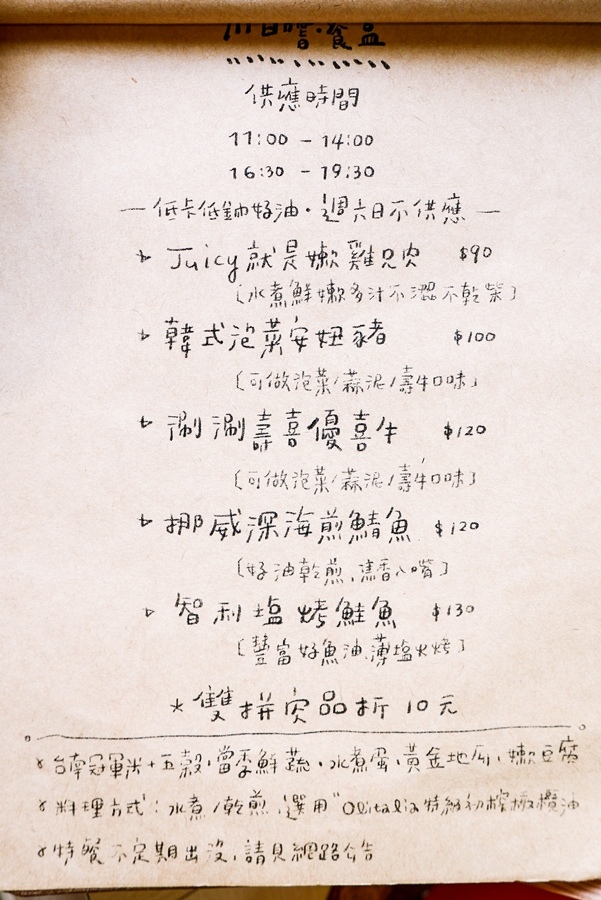 日嚐·餐盒
供應時間
11:00 - 14:00
16:30 - 19:30
—低卡低鈉好油·週六日不供應—
Juicy就是嫩雞兄肉 $90
〔水煮鮮嫩多汁不澀不乾柴〕
韓式泡菜安妞豬 $100
〔可做泡菜/蒜泥/壽牛口味〕
涮涮壽喜優喜牛 $120
〔可做泡菜/蒜泥/壽牛口味〕
挪威深海煎鯖魚 $120
〔好油乾煎,焦香入嘴〕
智利塩烤鮭魚 $130
〔豐富好魚油,薄塩火烤〕
*雙拼肉品折 10 元
台南冠軍米+五穀,當季鮮蔬、水煮蛋、黃金地瓜、嫩豆腐
料理方式:水煮/乾煎,選用"Olitalia特級初榨橄欖油
特餐不定期出沒,請見網路公告